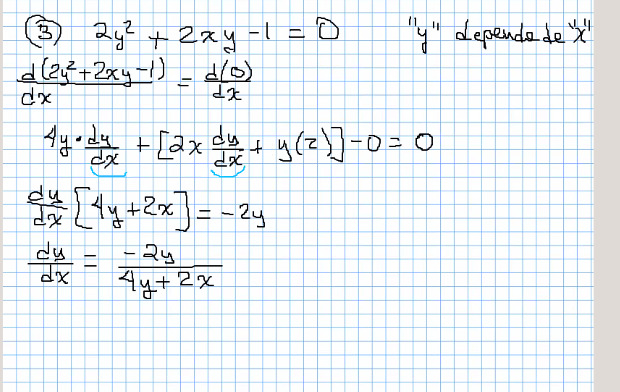 ③ 2y² + 2xy - 1 = 0 "y" depende de "x"
d(2y²+2xy-1)/dx = d(0)/dx
4y·dy/dx + [2x dy/dx + y(2)] - 0 = 0
dy/dx [4y+2x] = -2y
dy/dx = -2y/(4y+2x)